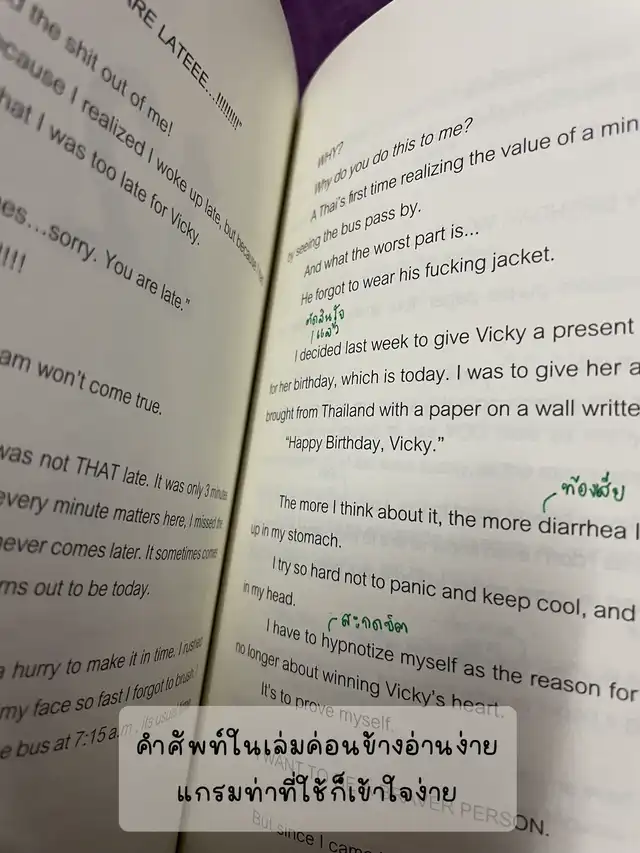 ARE LATEEE...!!!!!!!!"
d the shit out of me!
ecause I realized I woke up late, but because
hat I was too late for Vicky.
es...sorry. You are late."
!!!!
am won't come true.
was not THAT late. It was only 3 minutes
every minute matters here, I missed the
never comes later. It sometimes comes
rns out to be today.
a hurry to make it in time. I rushed
my face so fast I forgot to brush
e bus at 7:15 a.m., its usual time
WHY?
Why do you do this to me?
A Thai's first time realizing the value of a min
by seeing the bus pass by.
And what the worst part is...
He forgot to wear his fucking jacket.
ตัดสินใจ
แล้ว
I decided last week to give Vicky a present
for her birthday, which is today. I was to give her a
brought from Thailand with a paper on a wall writte
"Happy Birthday, Vicky."
ท้องเสีย
The more I think about it, the more diarrhea I
up in my stomach.
I try so hard not to panic and keep cool, and
in my head.
สะกดจิต
I have to hypnotize myself as the reason for
no longer about winning Vicky's heart.
It's to prove myself.
I WANT TO BE PERSON.
But since I came
คำศัพท์ในเล่มค่อนข้างอ่านง่าย
แกรมท่าที่ใช้ก็เข้าใจง่าย